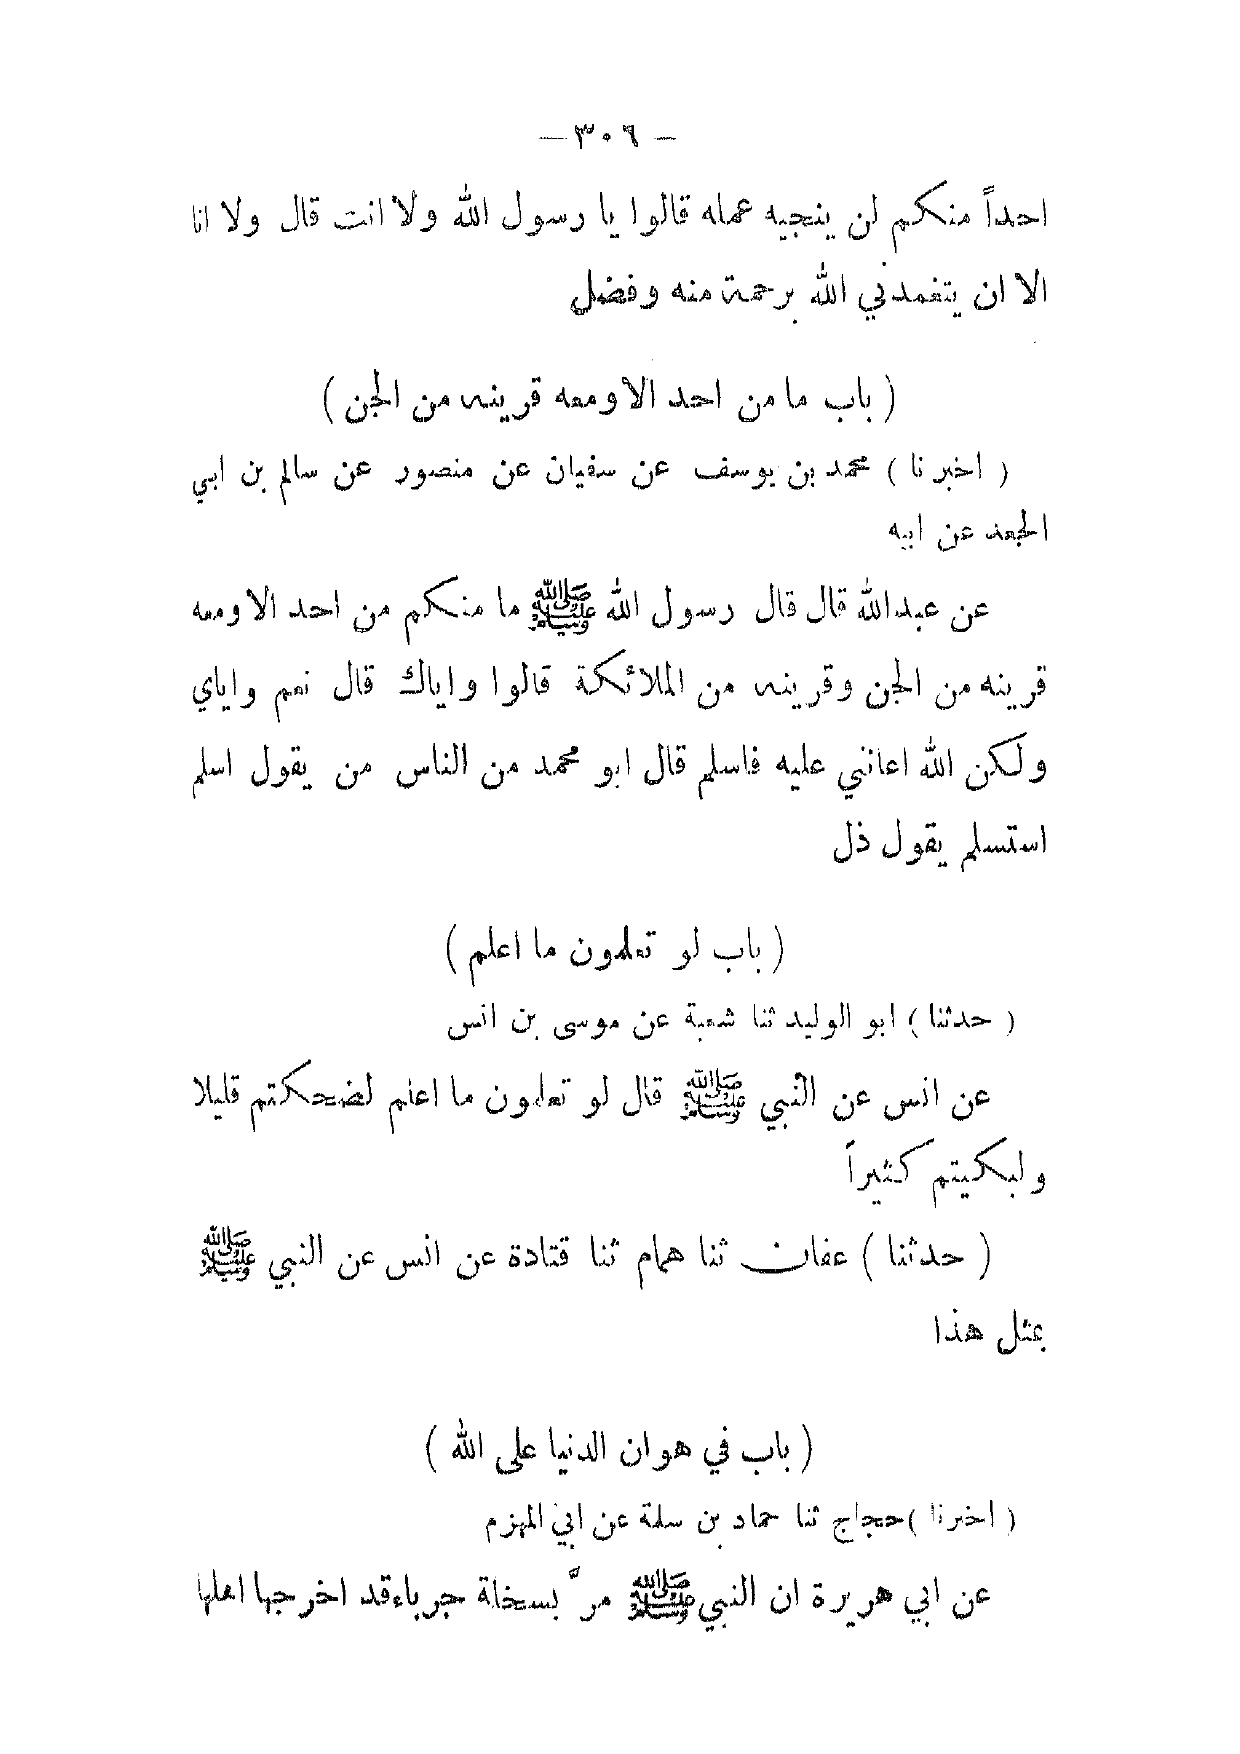 - ٣٠٦ -
احداً منكم لن ينجيه عمله قالوا يا رسول الله ولا انت قال ولا انا
الا ان يتغمدني الله برحمة منه وفضل
( باب ما من احد الا ومعه قرينه من الجن )
( اخبرنا ) محمد بن يوسف عن سفيان عن منصور عن سالم بن ابي
الجعد عن ابيه
عن عبدالله قال قال رسول الله ﷺ ما منكم من احد الا ومعه
قرينه من الجن وقرينه من الملائكة قالوا واياك قال نعم واياي
ولكن الله اعانني عليه فاسلم قال ابو محمد من الناس من يقول اسلم
استسلم يقول ذل
( باب لو تعلمون ما اعلم )
( حدثنا ) ابو الوليد ثنا شعبة عن موسى بن انس
عن انس عن النبي ﷺ قال لو تعلمون ما اعلم لضحكتم قليلا
ولبكيتم كثيراً
( حدثنا ) عفان ثنا همام ثنا قتادة عن انس عن النبي ﷺ
بمثل هذا
( باب في هوان الدنيا على الله )
( اخبرنا ) حجاج ثنا حماد بن سلمة عن ابي المهزم
عن ابي هريرة ان النبي ﷺ مرّ بسخلة جرباء قد اخرجها اهلها